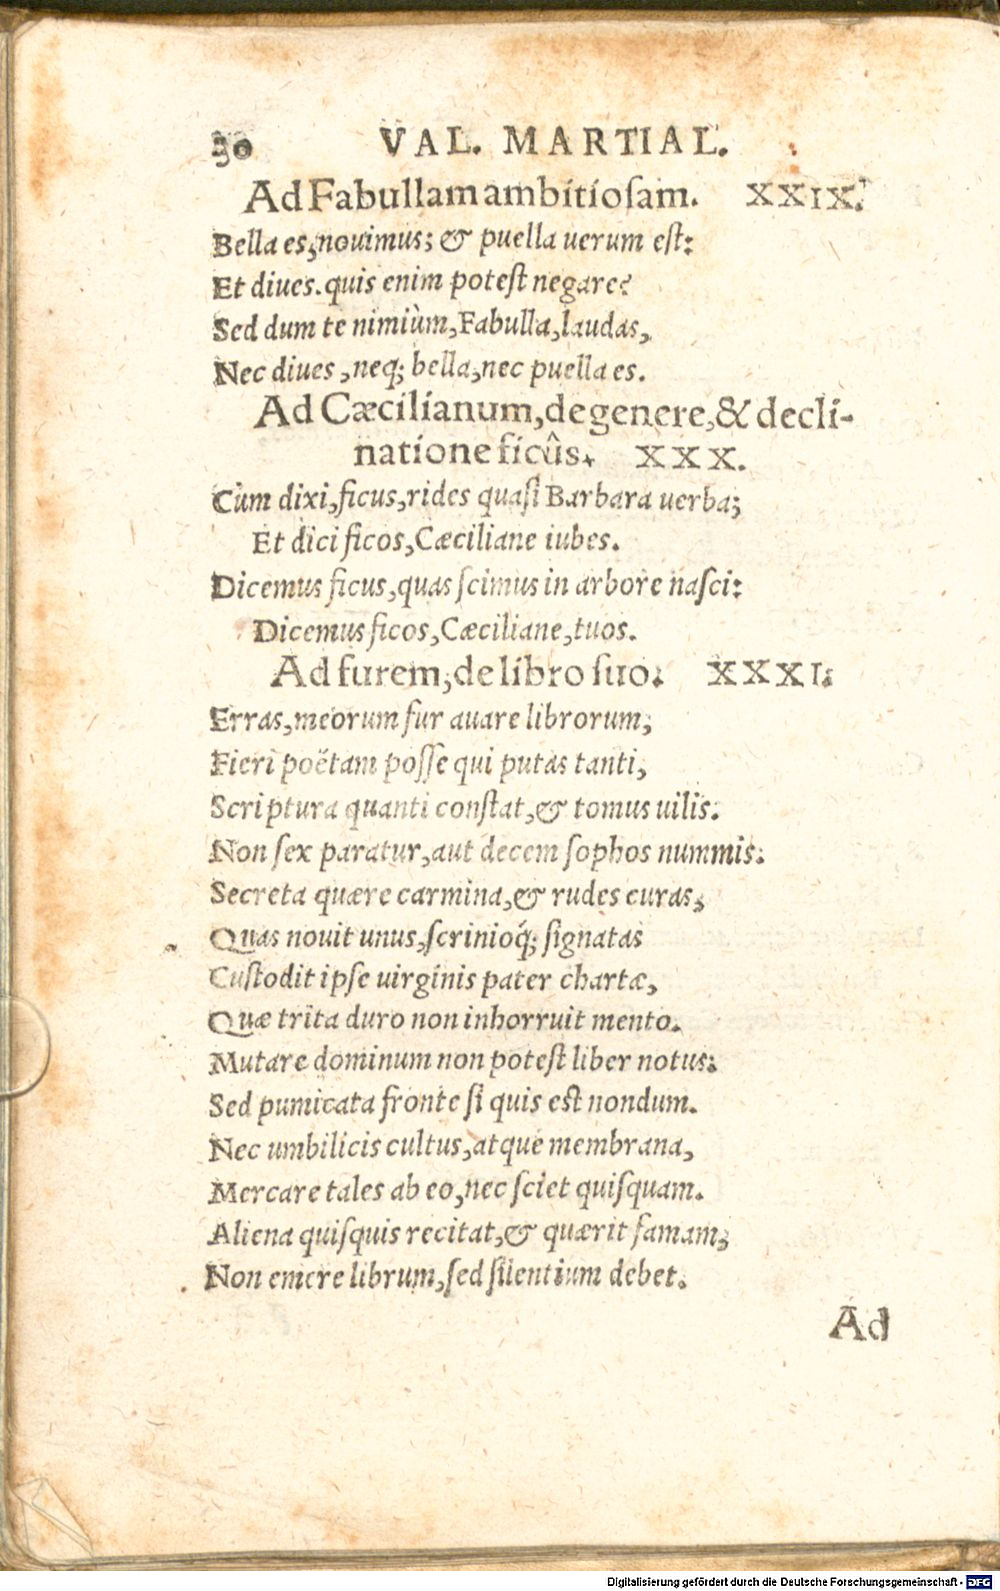 30 VAL. MARTIAL.
Ad Fabullam ambitiosam. XXIX.
Bella es, nouimus; & puella uerum est:
Et diues. quis enim potest negare?
Sed dum te nimiùm, Fabulla, laudas,
Nec diues, neq; bella, nec puella es.
Ad Cæcilianum, de genere, & decli-
natione ficûs. XXX.
Cùm dixi, ficus, rides quasi Barbara uerba;
Et dici ficos, Cæciliane iubes.
Dicemus ficus, quas scimus in arbore nasci:
Dicemus ficos, Cæciliane, tuos.
Ad furem, de libro suo. XXXI.
Erras, meorum fur auare librorum,
Fieri poëtam posse qui putas tanti,
Scriptura quanti constat, & tomus uilis.
Non sex paratur, aut decem sophos nummis.
Secreta quære carmina, & rudes curas,
Quas nouit unus, scrinioq́; signatas
Custodit ipse uirginis pater chartæ,
Quæ trita duro non inhorruit mento.
Mutare dominum non potest liber notus.
Sed pumicata fronte si quis est nondum.
Nec umbilicis cultus, atque membrana,
Mercare tales ab eo, nec sciet quisquam.
Aliena quisquis recitat, & quærit famam,
Non emere librum, sed silentium debet.
Ad
Digitalisierung gefördert durch die Deutsche Forschungsgemeinschaft - DFG